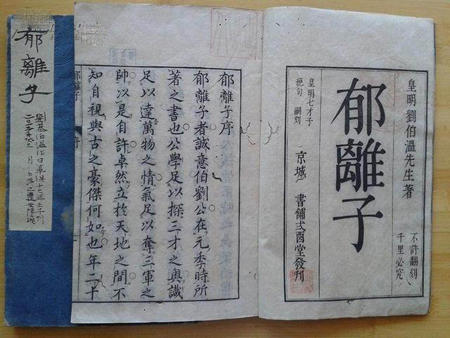 皇明劉伯溫先生著
郁離子
不許翻刻
千里必究
皇明七才子
京城 書鋪式酉堂發刊
郁離子序
郁離子者誠意伯劉公在元季時所
著之書也公學足以探三才之奧識
足以達萬物之情氣足以奪三軍之
帥以是自許卓然立於天地之間不
知自視與古之豪傑何如也年二十
郁離子
郁離子